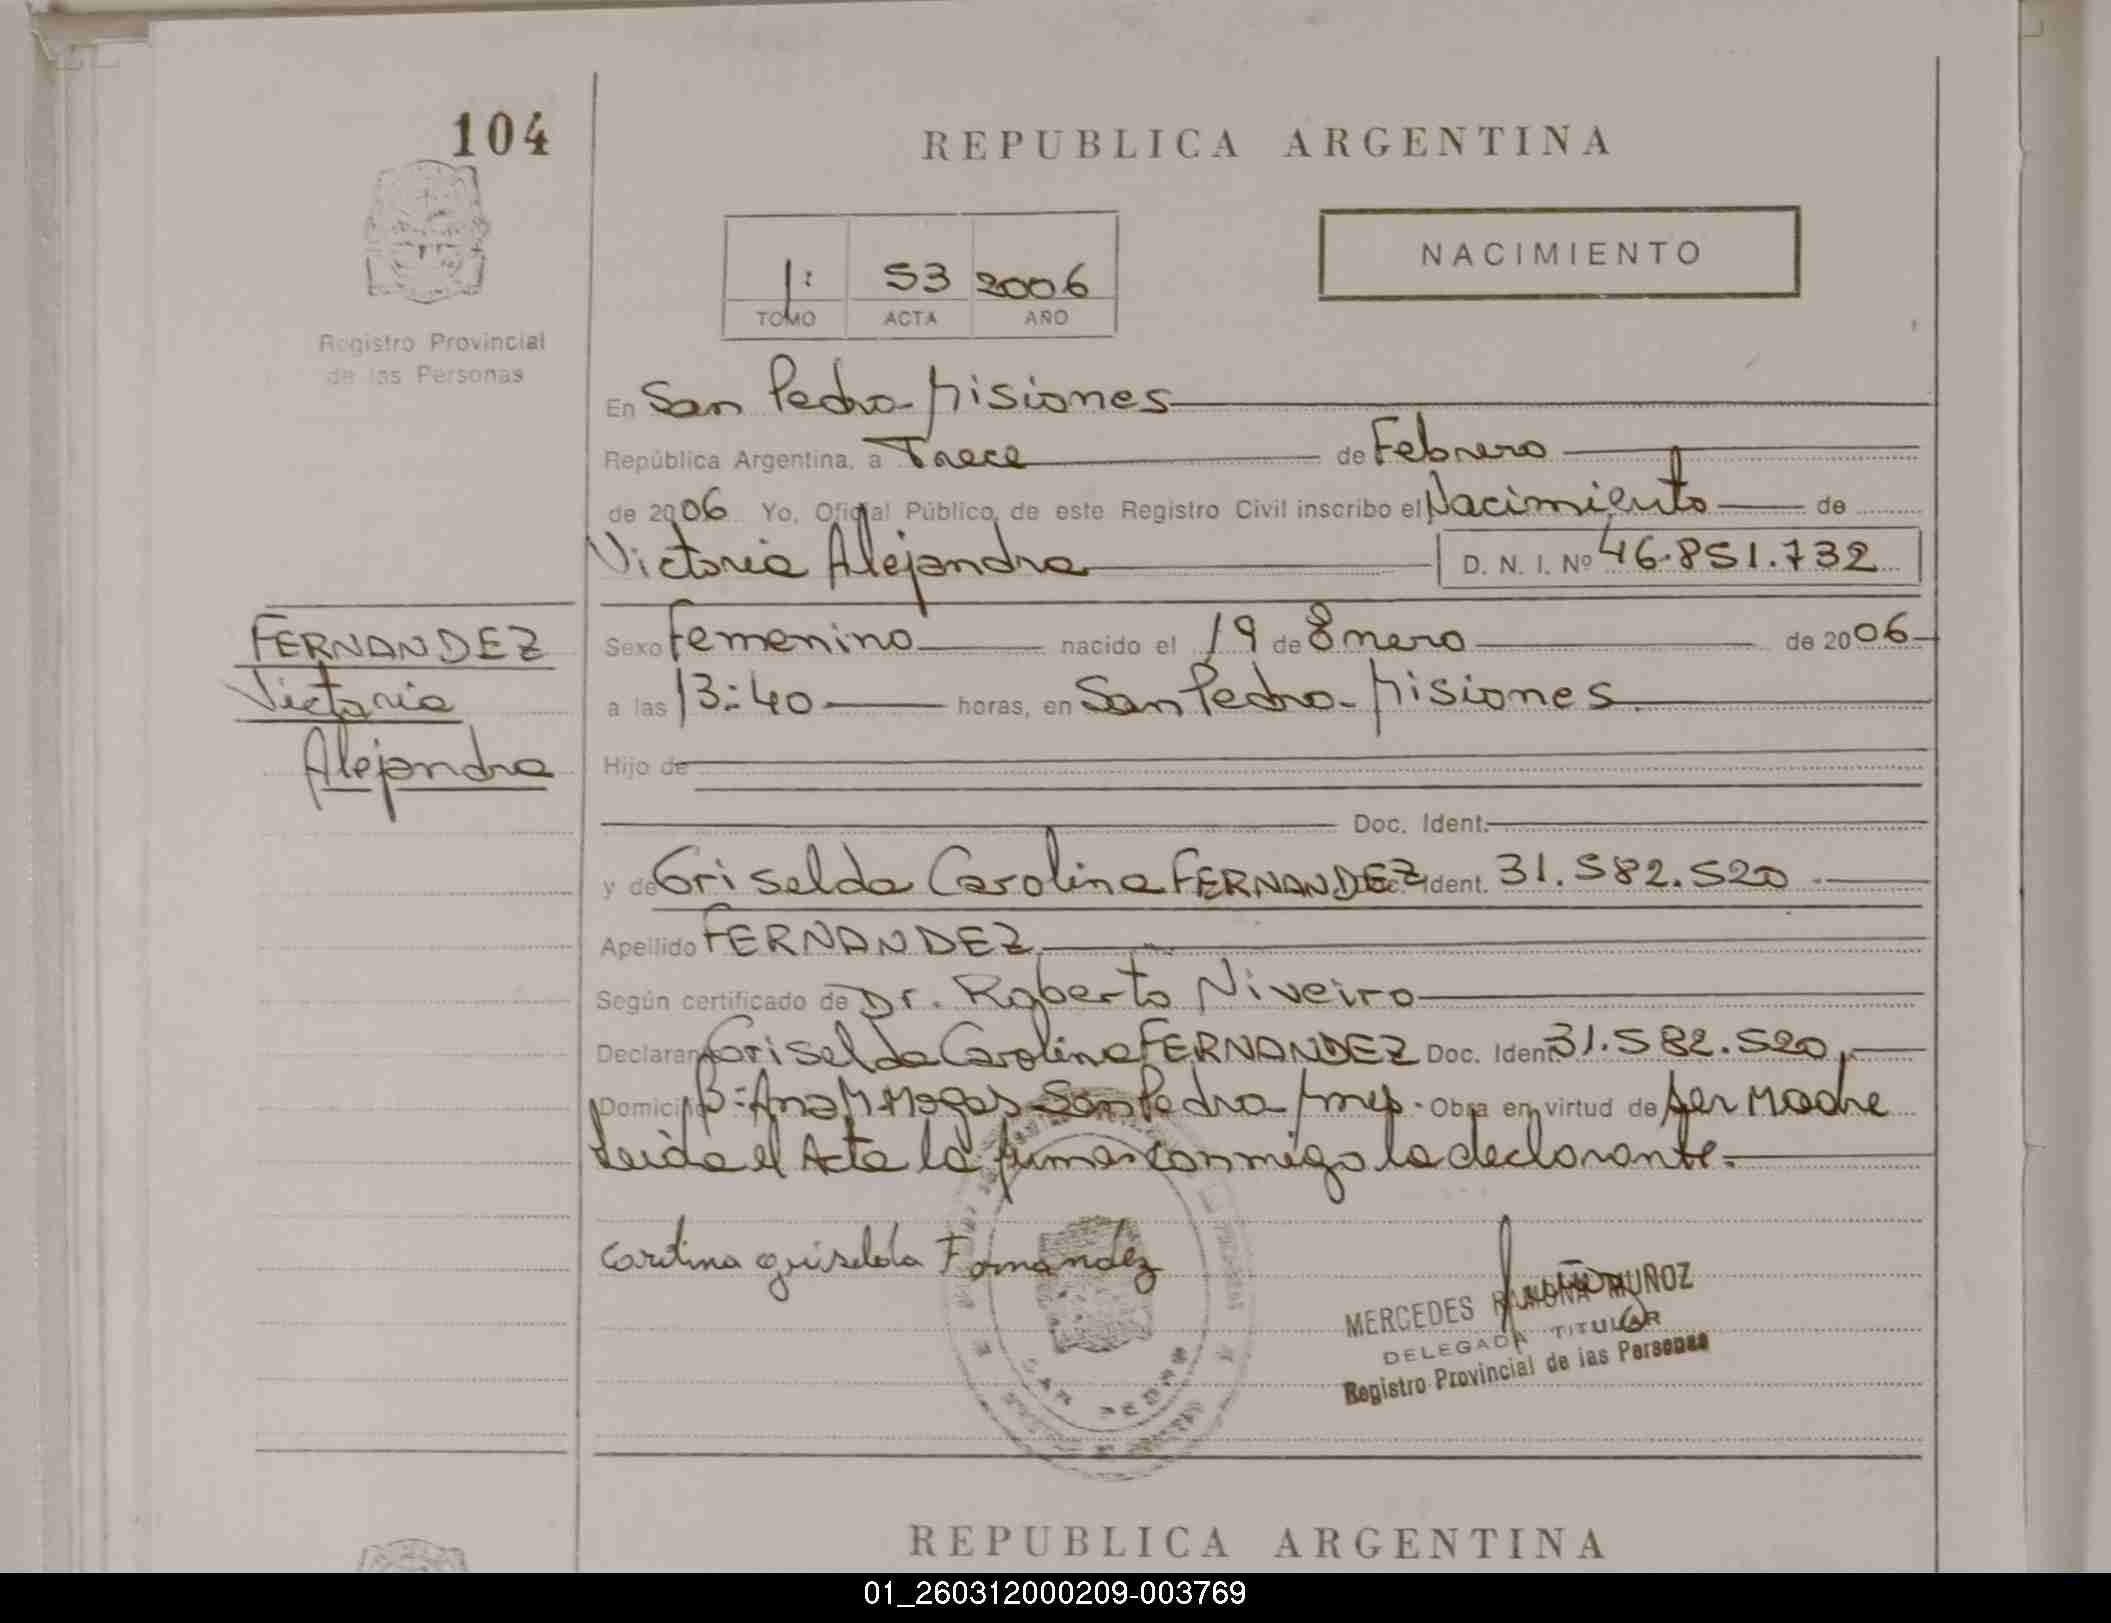 104
REPUBLICA ARGENTINA
NACIMIENTO
1: 53 2006
TOMO ACTA AÑO
Registro Provincial
de las Personas
En San Pedro - Misiones
República Argentina, a Trece de Febrero
de 2006 Yo, Oficial Público, de este Registro Civil inscribo el Nacimiento de
Victoria Alejandra D. N. I. Nº 46.851.732
FERNANDEZ
Victoria
Alejandra
Sexo Femenino nacido el 19 de Enero de 2006
a las 13:40 horas, en San Pedro - Misiones.
Hijo de
Doc. Ident.
y de Griselda Carolina FERNANDEZ Doc. Ident. 31.582.520
Apellido FERNANDEZ
Según certificado de Dr. Roberto Niveiro
Declarante Griselda Carolina FERNANDEZ Doc. Ident. 31.582.520
Domicilio Bº: Ana M. Mogas San Pedro Mnes. Obra en virtud de ser Madre
Leída el Acta la firma conmigo la declarante.
Carolina griselda Fernandez
MERCEDES RAMONA MUÑOZ
DELEGADA TITULAR
Registro Provincial de las Personas
SAN PEDRO
REPUBLICA ARGENTINA
01_260312000209-003769